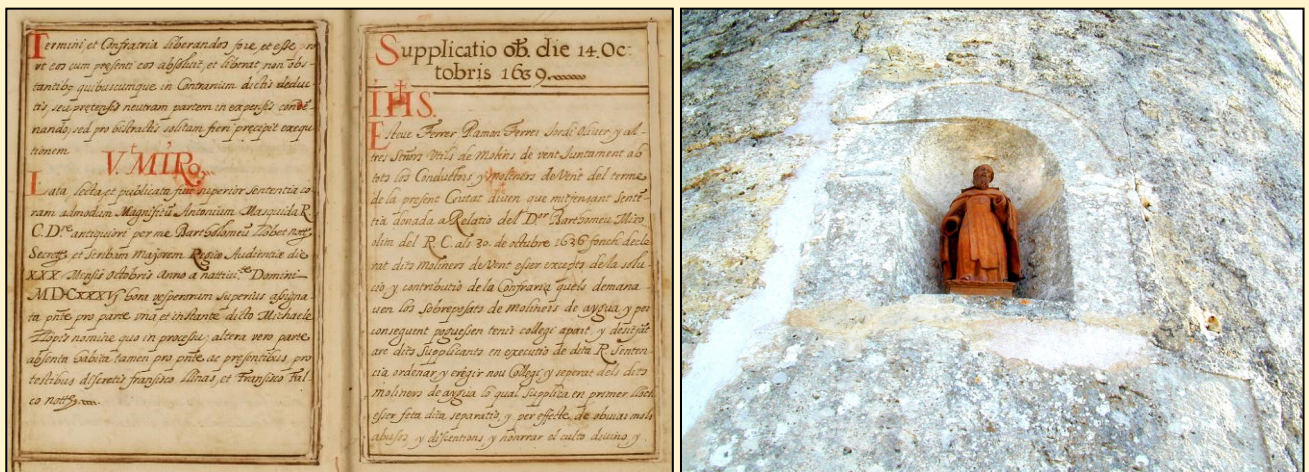 Termini, et Confratria liberandos fore, et esse pro
ut eos cum presenti eos absoluit, et liberat non obs-
tantibꝫ quibuscumque in Contrarium dictis deduc-
tis, seu pretensis neutram partem in expensis conde-
nando, sed pro bistractis solitam fieri precepit exequ-
tionem
V. MIRo.
Lata lecta et publicata fuit superior sententia co-
ram admodum Magnifico Antonium Masquida R.
C. Dre antiquiori per me Bartholomeu Llobet notm
Secretm et Scribam Majorem Regie Audientie die
XXX Mensis Octobris anno a nattiuite Domini
MDCXXXVj hora vesperarum superius assigna-
ta pnte pro parte vna et instante dicto Michaele
Llopis nomine quo in processu, altera vero parte
absenta habita tamen pro pnte ac presentibus, pro
testibus discretis fransisco llinas, et Fransisco Fal-
co notts
Supplicatio ob. die 14. Oc:
tobris 1639
IHS.
Esteue Ferrer Ramon Ferrer Jordi Oliuer y al-
tres Señors Vtils de Molins de vent Juntament ab
tots los Conductors y moliners de Vent del terme
de la present Ciutat diuen que mitsensant Sente-
tia donada a Relatio del Dor Barthomeu Miro
olim del R. C. als 30. de octubre 1636 fonch decla
rat dits Moliners de Vent esser exempts de la solu-
cio y contributio de la Confraria quels demana-
uen los Sobreposats de moliners de aygua y per
conseguent poguessen tenir collegi apart, y desitjãt
are dits Supplicants en executio de dita R. Senten
cia ordenar y erigir nou Collegi y seperat dels dits
moliners de aygua lo qual Suppliza en primer lloch
esser feta dita separatio, y per effecte de obuiar mols
abusos, y discentions y honrrar el culto diuino y